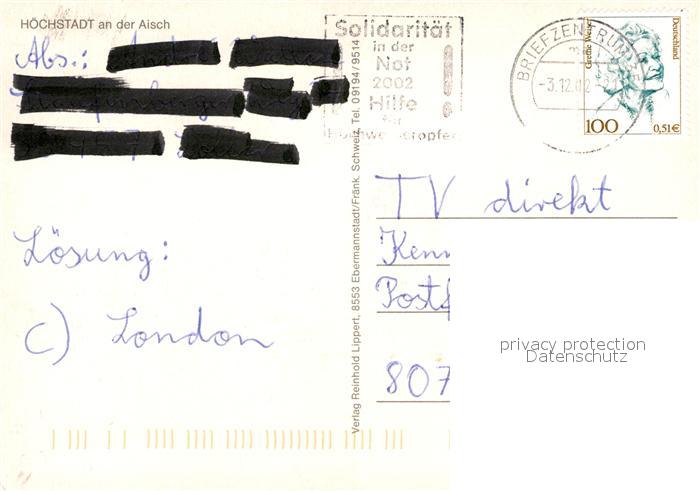 HÖCHSTADT an der Aisch
Abs.:
Lösung:
C) London
Verlag Reinhold Lippert, 8553 Ebermannstadt/Fränk. Schweiz, Tel. 09194/9514
Solidarität
in der
Not
2002
Hilfe
für
BRIEFZENTRUM
-3.12.02
Grethe Weiser
Deutschland
100
0,51€
TV direkt
Kenn
Postf
807
privacy protection
Datenschutz